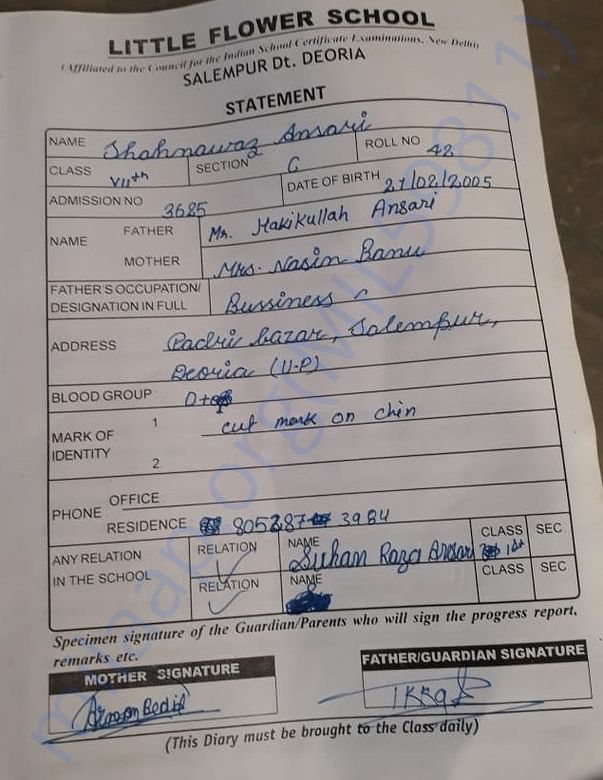 LITTLE FLOWER SCHOOL
(Affiliated to the Council for the Indian School Certificate Examinations, New Delhi)
SALEMPUR Dt. DEORIA
STATEMENT
NAME Shahnawaz Ansari
CLASS VIIth SECTION C ROLL NO 42
ADMISSION NO 3685 DATE OF BIRTH 21/02/2005
NAME FATHER Mr. Hakikullah Ansari
MOTHER Mrs. Nasin Banu
FATHER'S OCCUPATION/ DESIGNATION IN FULL Bussiness
ADDRESS Padri bazar, Salempur,
Deoria (U.P)
BLOOD GROUP O+
MARK OF IDENTITY 1 cut mark on chin
2.
PHONE OFFICE
RESIDENCE 805287 3984
ANY RELATION IN THE SCHOOL RELATION NAME Suhan Raza Ansari CLASS 1st SEC
RELATION NAME CLASS SEC
Specimen signature of the Guardian/Parents who will sign the progress report,
remarks etc.
MOTHER SIGNATURE FATHER/GUARDIAN SIGNATURE
(This Diary must be brought to the Class daily)